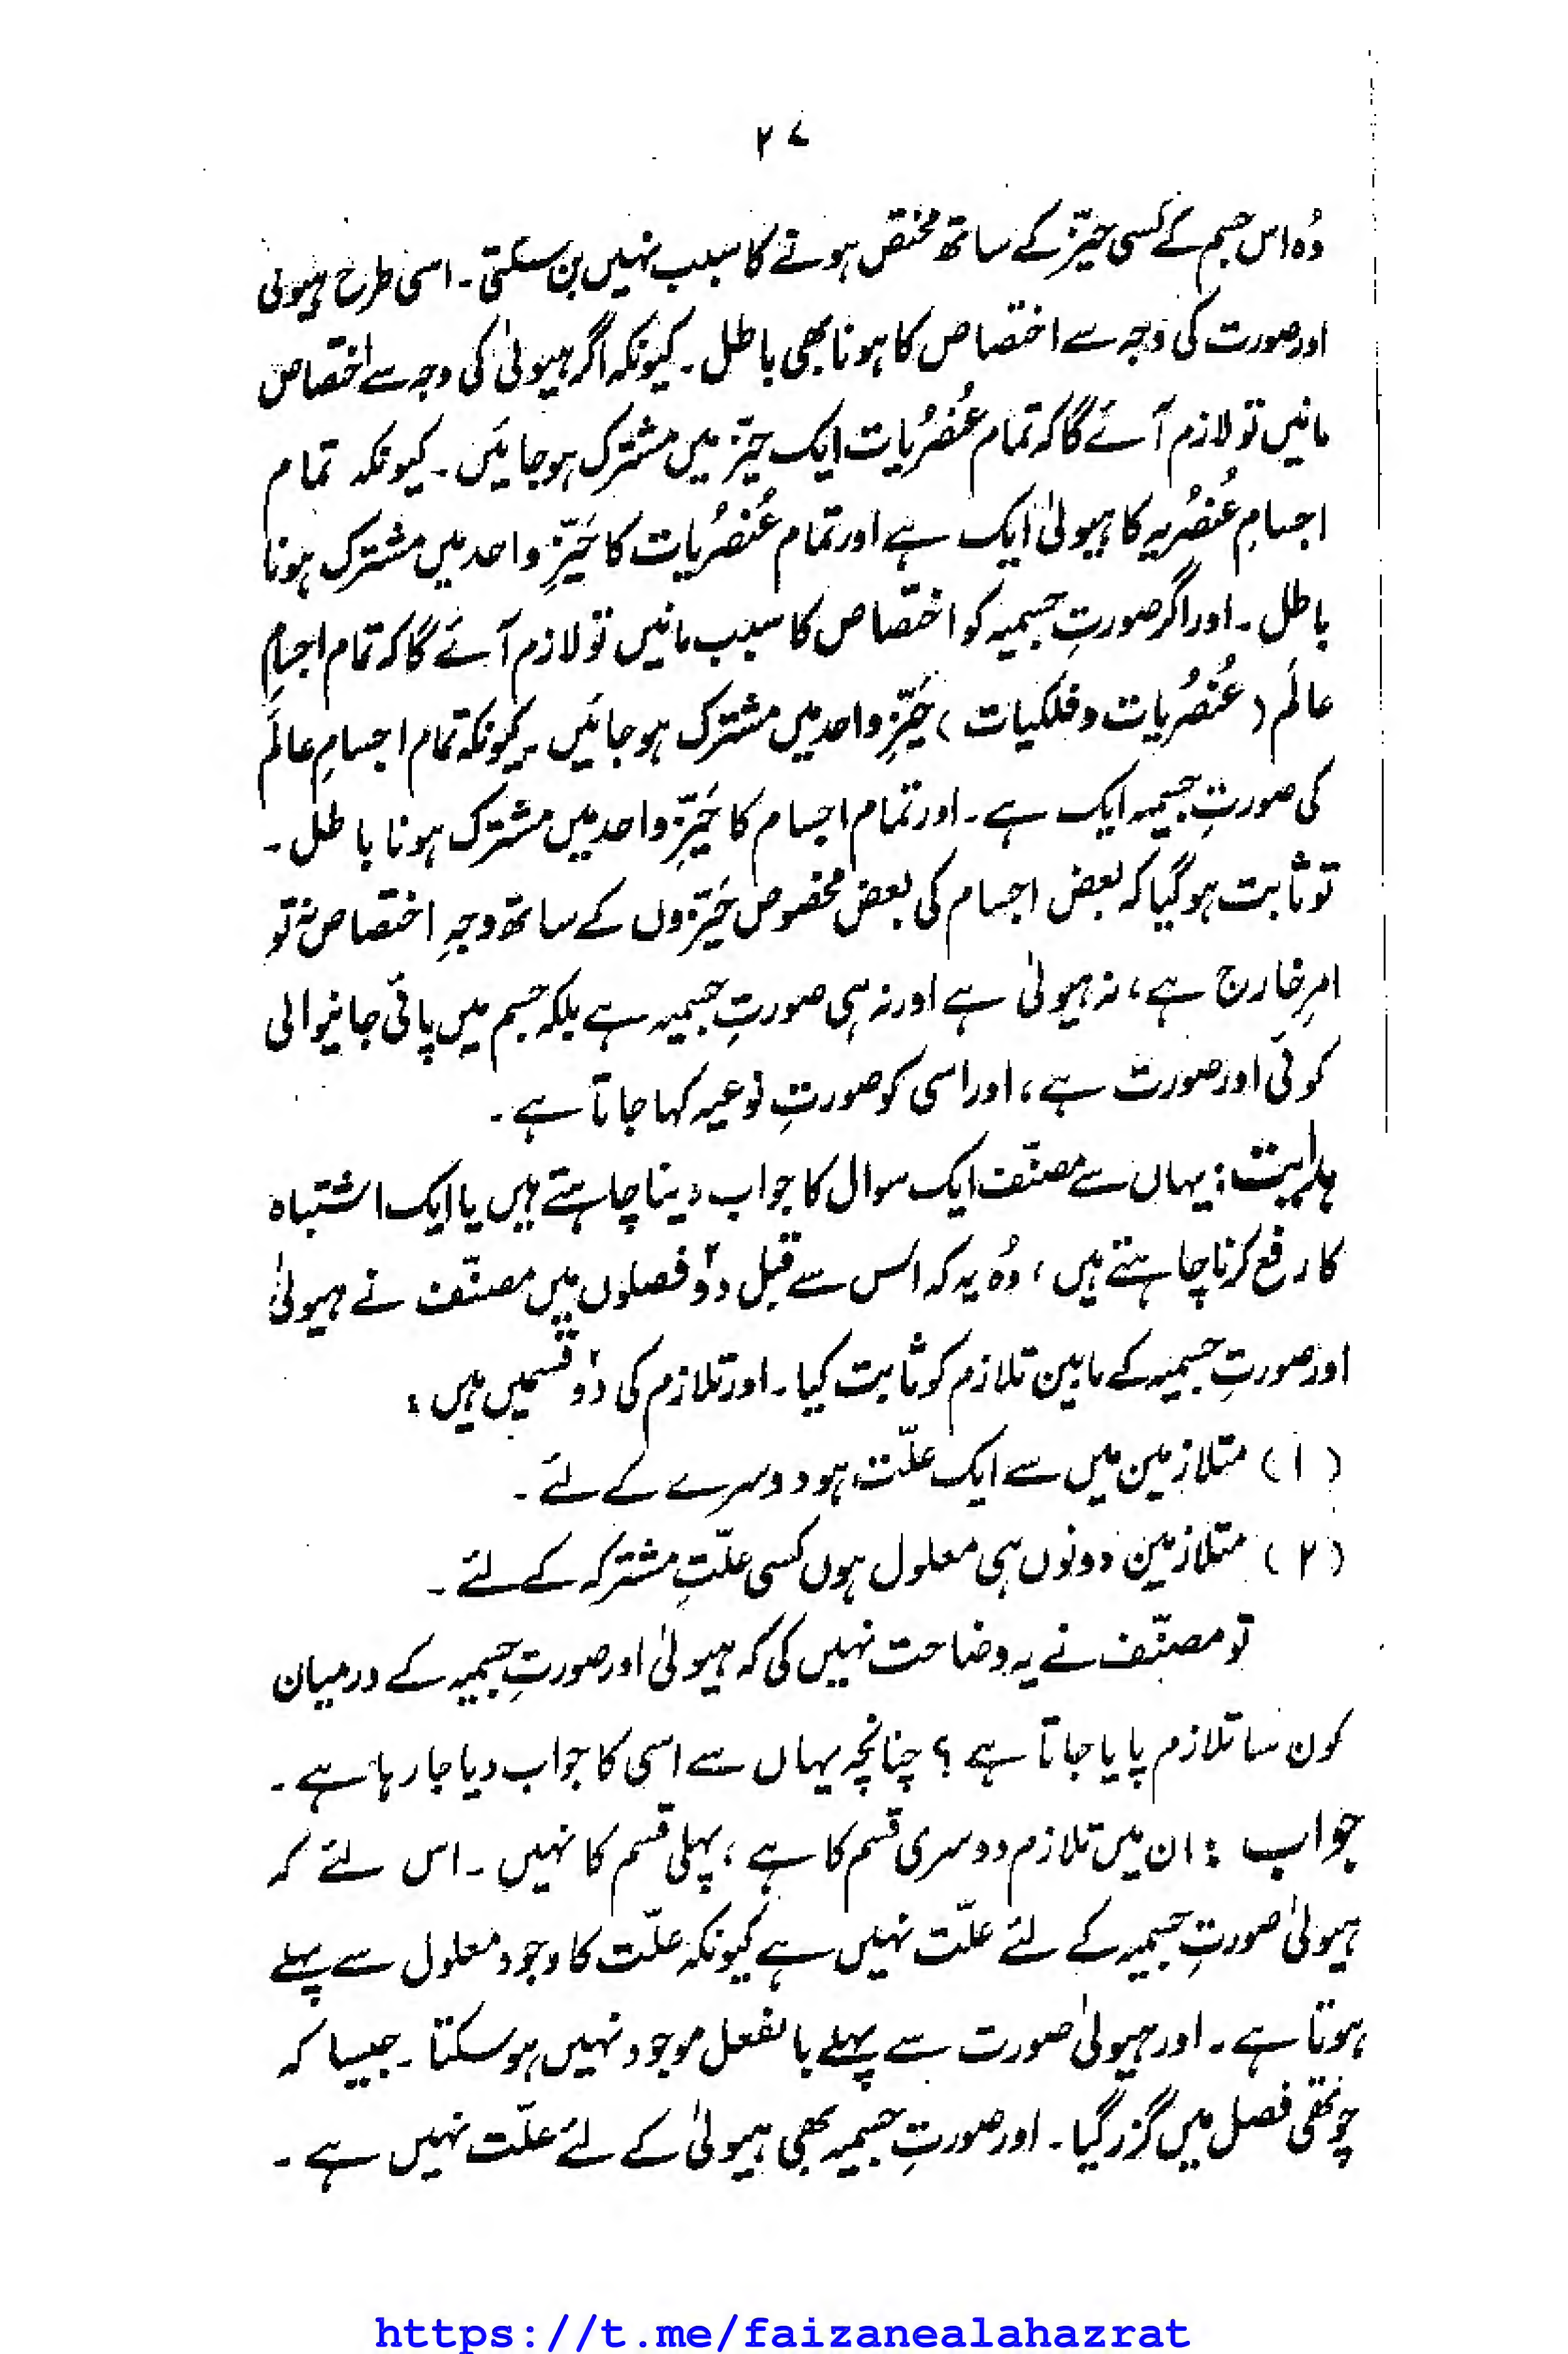 ۲۷
وُہ اس جسم کے کسی حیّز کے ساتھ مختص ہونے کا سبب نہیں بن سکتی۔ اسی طرح ہیولی
اور صورت کی وجہ سے اختصاص کا ہونا بھی باطل۔ کیونکہ اگر ہیولیٰ کی وجہ سے اختصاص
مانیں تو لازم آئے گا کہ تمام عُنصُریات ایک حیّز میں مشترک ہوجائیں۔ کیونکہ تمام
اجسامِ عُنصُریہ کا ہیولیٰ ایک ہے اور تمام عُنصُریات کا حَیّزِ واحد میں مشترک ہونا
باطل۔ اور اگر صورتِ جسمیہ کو اختصاص کا سبب مانیں تو لازم آئے گا کہ تمام اجسامِ
عالَم (عُنصُریات و فلکیات) حَیّزِ واحد میں مشترک ہوجائیں۔ کیونکہ تمام اجسامِ عالَم
کی صورتِ جسمیہ ایک ہے۔ اور تمام اجسام کا حَیّزِ واحد میں مشترک ہونا باطل۔
تو ثابت ہوگیا کہ بعض اجسام کی بعض مخصوص حَیّزوں کے ساتھ وجہِ اختصاص نہ تو
امرِ خارج ہے، نہ ہیولیٰ ہے اور نہ ہی صورتِ جسمیہ ہے بلکہ جسم میں پائی جانیوالی
کوئی اور صورت ہے، اور اسی کو صورتِ نوعیہ کہا جاتا ہے۔
ہدایت: یہاں سے مصنّف ایک سوال کا جواب دینا چاہتے ہیں یا ایک اشتباہ
کا رفع کرنا چاہتے ہیں، وُہ یہ کہ اس سے قبل دو۲ فصلوں میں مصنّف نے ہیولیٰ
اور صورتِ جسمیہ کے مابین تلازم کو ثابت کیا۔ اور تلازم کی دو۲ قسمیں ہیں:
(۱) متلازمین میں سے ایک علّت ہو دوسرے کے لئے۔
(۲) متلازمین دونوں ہی معلول ہوں کسی علّتِ مشترکہ کے لئے۔
تو مصنّف نے یہ وضاحت نہیں کی کہ ہیولیٰ اور صورتِ جسمیہ کے درمیان
کون سا تلازم پایا جاتا ہے؟ چنانچہ یہاں سے اسی کا جواب دیا جا رہا ہے۔
جواب: ان میں تلازم دوسری قسم کا ہے، پہلی قسم کا نہیں۔ اس لئے کہ
ہیولیٰ صورتِ جسمیہ کے لئے علّت نہیں ہے کیونکہ علّت کا وجود معلول سے پہلے
ہوتا ہے۔ اور ہیولیٰ صورت سے پہلے بالفعل موجود نہیں ہوسکتا۔ جیسا کہ
چوتھی فصل میں گزر گیا۔ اور صورتِ جسمیہ بھی ہیولیٰ کے لئے علّت نہیں ہے۔
https://t.me/faizanealahazrat